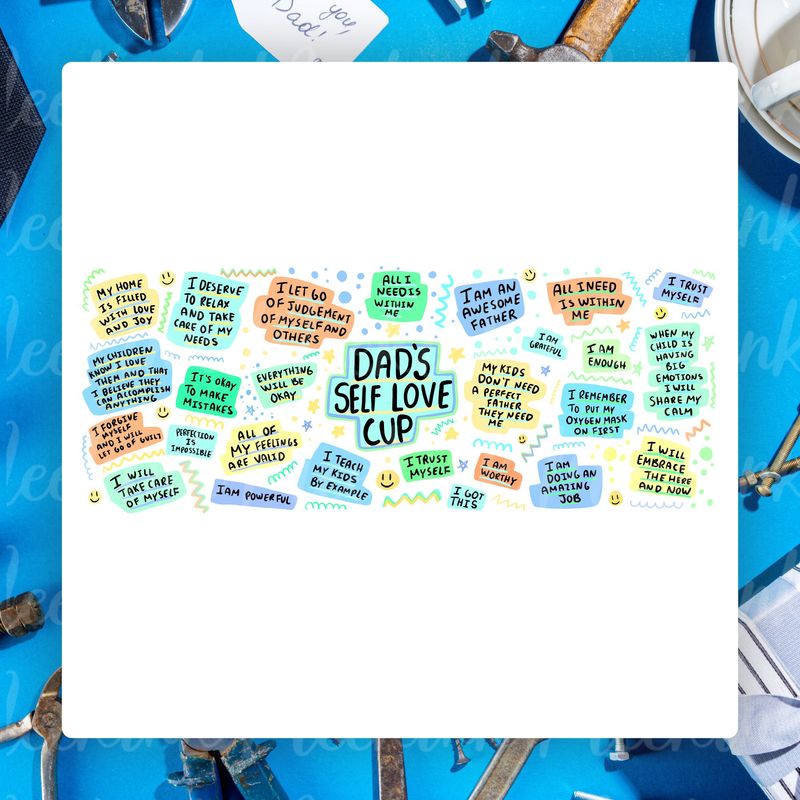 you,
Dad!
MY HOME
IS FILLED
WITH LOVE
AND JOY
I DESERVE
TO RELAX
AND TAKE
CARE OF MY
NEEDS
I LET GO
OF JUDGEMENT
OF MYSELF AND
OTHERS
ALL I
NEED IS
WITHIN
ME
I AM AN
AWESOME
FATHER
ALL I NEED
IS WITHIN
ME
I TRUST
MYSELF
MY CHILDREN
KNOW I LOVE
THEM AND THAT
I BELIEVE THEY
CAN ACCOMPLISH
ANYTHING
IT'S OKAY
TO MAKE
MISTAKES
EVERYTHING
WILL BE
OKAY
DAD'S
SELF LOVE
CUP
MY KIDS
DON'T NEED
A PERFECT
FATHER
THEY NEED
ME
I AM
GRATEFUL
I AM
ENOUGH
WHEN MY
CHILD IS
HAVING
BIG
EMOTIONS
I WILL
SHARE MY
CALM
I REMEMBER
TO PUT MY
OXYGEN MASK
ON FIRST
I FORGIVE
MYSELF
AND I WILL
LET GO OF GUILT
PERFECTION
IS
IMPOSSIBLE
ALL OF
MY FEELINGS
ARE VALID
I WILL
TAKE CARE
OF MYSELF
I AM POWERFUL
I TEACH
MY KIDS
BY EXAMPLE
I TRUST
MYSELF
I GOT
THIS
I AM
WORTHY
I AM
DOING AN
AMAZING
JOB
I WILL
EMBRACE
THE HERE
AND NOW